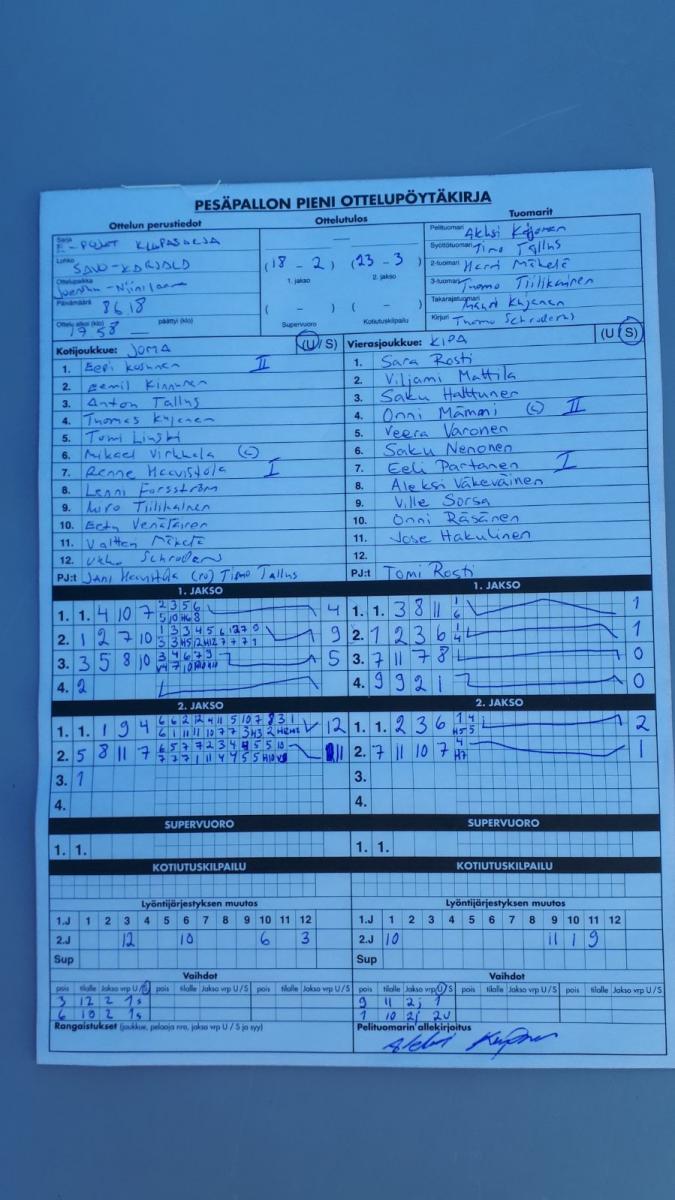 PESÄPALLON PIENI OTTELUPÖYTÄKIRJA
Ottelun perustiedot
Ottelutulos
Tuomarit
Sarja
E-POJAT
Lohko
SAVO-KARJALA
Ottelupaikka
Päivämäärä
8618
Ottelu alkoi (klo) 1758 päättyi (klo)
(18 - 2) (23 - 3)
1. jakso 2. jakso
( - ) ( - )
Supervuoro Kotiutuskilpailu
Pelituomari
Syöttötuomari Timo Tallus
2-tuomari Harri Mäkelä
3-tuomari Tuomo Tiilikainen
Takarajatuomari
Kirjuri Tuomo Schroderus
Kotijoukkue: JOMA (U / S)
1. Eepi Kosunen II
2. Eemil Kinnunen
3. Anton Tallus
4. Thomas
5. Tomi
6. Mikael Virkkala (C)
7. Renne Haavistola I
8. Lenni Forsström
9. Miro Tiilikainen
10. Eetu Venäläinen
11. Valtteri Mäkelä
12. Ukko Schroderus
PJ:t Jani Haavistola (PJ) Timo Tallus
Vierasjoukkue: KIPA (U / S)
1. Sara Rosti
2. Viljami Mattila
3. Saku Halttunen
4. Onni Mämmi (C) II
5. Veera Varonen
6. Saku Nenonen
7. Eeli Partanen I
8. Aleksi Väkeväinen
9. Ville Sorsa
10. Onni Räsänen
11. Jose Hakulinen
12.
PJ:t Tomi Rosti
1. JAKSO
1. 1. 4 10 7 2 3 5 6 4
2. 1 2 7 10 9
3. 3 5 8 10 3 4 6 7 9 5
4. 2
1. JAKSO
1. 1. 3 8 11 1 6 1
2. 1 2 3 6 1 4 1
3. 7 11 7 8 0
4. 9 9 2 1 0
2. JAKSO
1. 1. 1 9 4 6 6 2 12 4 11 5 10 7 8 3 1 12
2. 5 8 11 7 6 5 7 7 2 3 4 4 5 5 10 11
3. 1
4.
2. JAKSO
1. 1. 2 3 6 1 4 H5 5 2
2. 7 11 10 7 4 H7 1
3.
4.
SUPERVUORO
1. 1.
SUPERVUORO
1. 1.
KOTIUTUSKILPAILU
KOTIUTUSKILPAILU
Lyöntijärjestyksen muutos
1.J 1 2 3 4 5 6 7 8 9 10 11 12
2.J 12 10 6 3
Sup
Lyöntijärjestyksen muutos
1.J 1 2 3 4 5 6 7 8 9 10 11 12
2.J 10 11 1 9
Sup
Vaihdot
pois tilalle Jakso vrp U / S pois tilalle Jakso vrp U / S pois tilalle Jakso vrp U / S
3 12 2 1s
6 10 2 1s
Vaihdot
pois tilalle Jakso vrp U / S pois tilalle Jakso vrp U / S pois tilalle Jakso vrp U / S
9 11 2j 1
1 10 2j 2u
Rangaistukset (joukkue, pelaaja nro, jakso vrp U / S ja syy)
Pelituomarin allekirjoitus